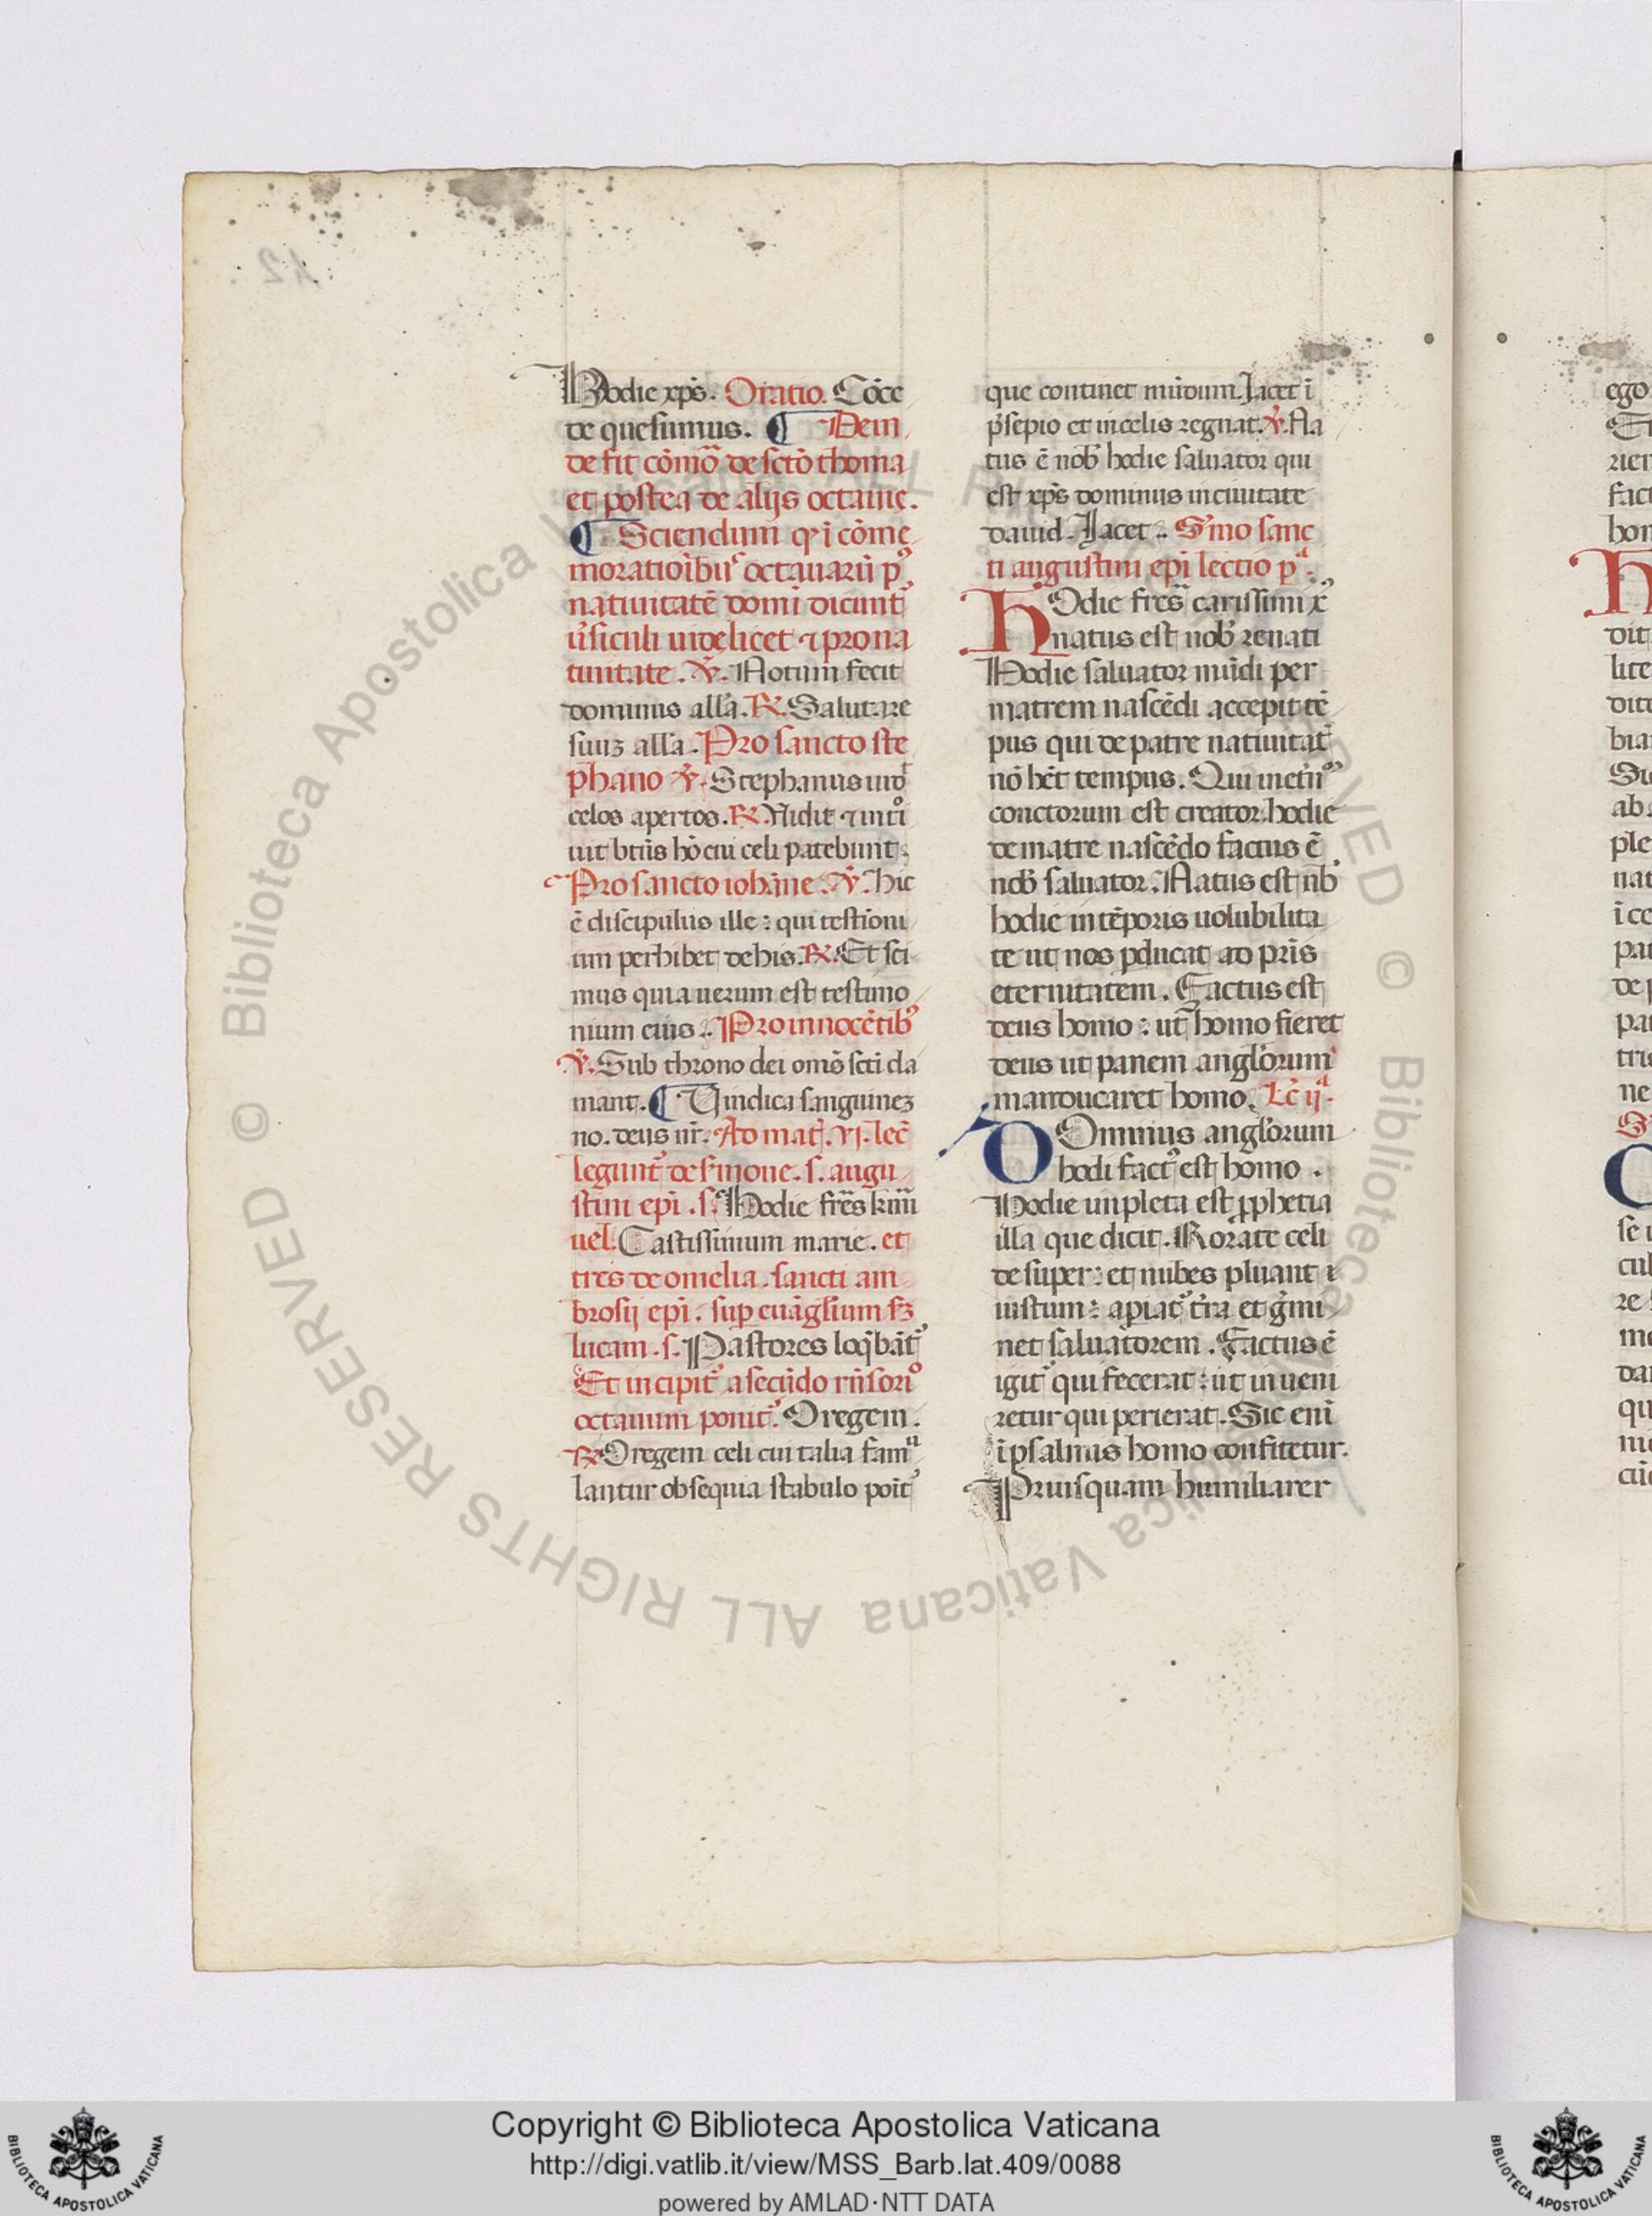 Hodie xp̄s. Oratio. Cōce
de quesumus. ¶ Dein
de fit cōmō de sctō thoma
et postea de alijs octauis.
¶ Sciendum qꝫ ī cōme
moratioībus octauarū pꝰ
natiuitatē domī dicunt᷑
ṽsiculi uidelicet ⁊ pro na
tiuitate. ℣. Notum fecit
dominus all̄a. ℟. Salutare
suuꝫ all̄a. Pro sancto ste
phano ℣. Stephanus uid᷑
celos apertos. ℟. Vidit ⁊ intͦi
uit btūs hō cui celi patebunt.
Pro sancto iohāne. ℣. hic
ē discipulus ille: qui testīoni
um perhibet de his. ℟. Et sci
mus quia uerum est testimo
nium eius. Pro innocētibꝰ
℣. Sub throno dei om̄s sctī cla
mant. ¶ Vindica sanguineꝫ
no. deus nr̄. Ad mat᷑. vj. lec̄
legunt᷑ de s̄mone. s. augu
stini epī. s. Hodie fr̄es k̄mi
uel. Castissimum marie. et
tres de omelia. sancti am
brosij epī. suꝑ euāgliūm s̄ꝫ
lucam. s. Pastores loq̄bāt᷑
Et incipit᷑ a secūdo rn̄sorͦi
octauum ponit᷑. O regem.
℟ O regem celi cui talia famᵃ
lantur obsequia stabulo poīt᷑
que continet mūdum. Jacet ī
p̄sepio et in celis regnat. ℣. Na
tus ē nob̄ hodie saluator qui
est xp̄s dominus in ciuitate
dauid. Jacet. S̄mo sanc
ti augustini epī lectio pᵃ.
HOdie fr̄es carissimi xꝰ
natus est nob̄ renati
Hodie saluator mūdi per
matrem nascēdi accepit tē
pus qui de patre natiuitat᷑
nō h̄et tempus. Qui
conctorum est creator: hodie
de matre nascēdo factus ē
nob̄ saluator. Natus est nb̄
hodie in tēporis uolubilita
te ut nos ꝑducat ad pr̄is
eternitatem. Factus est
deus homo: ut homo fieret
deus ut panem angl̄orum
manducaret homo. Lc̄ ijᵃ.
DOminus angl̄orum
hodi fact᷑ est homo.
Hodie impleta est ꝓphetia
illa que dicit. Rorate celi
desuper: et nubes pluant i
iustum: apiat᷑ t̄ra et ḡmi
net saluatorem. Factus ē
igit᷑ qui fecerat: ut inueni
retur qui perierat. Sic enī
ī psalmis homo confitetur.
Priusquam humiliarer
ego
fact
hom
H
dit
lite
dite
ab
ple
nat
ī ce
pat
de
C
Copyright © Biblioteca Apostolica Vaticana
http://digi.vatlib.it/view/MSS_Barb.lat.409/0088
powered by AMLAD·NTT DATA
BIBLIOTECA APOSTOLICA VATICANA
BIBLIOTECA APOSTOLICA VATICANA
© Biblioteca Apostolica Vaticana ALL RIGHTS RESERVED